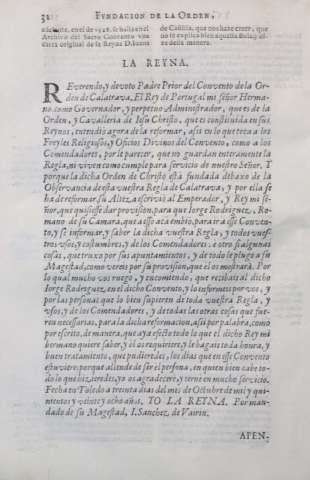 32 FVNDACION DE LA ORDEN,
adelante, en el de 1528. se halla en el
Archivo del Sacro Convento vna
carta original de la Reyna D. Juana
de Castilla, que nos haze creer, que
no se explicò bien aquella Bula; y dize
desta manera.
LA REYNA.
REverendo, y devoto Padre Prior del Convento de la Or-
den de Calatrava, El Rey de Portugal mi señor Herma-
no, como Governador, y perpetuo Administrador, que es de la
Orden, y Cavalleria de Iesu Christo, que es constituida en sus
Reynos, entendiò agora de la reformar, assi en lo que toca a los
Freyles Religiosos, y Oficios Divinos del Convento, como a los
Comendadores, por le parecer, que no guardan enteramente la
Regla, ni viven como cumple para servicio de nuestro Señor. Y
porque la dicha Orden de Christo està fundada debaxo de la
Observancia desta vuestra Regla de Calatrava; y por ella se
ha de reformar, su Alteza escriviò al Emperador, y Rey mi se-
ñor, que quisiesse dar provision, para que Iorge Rodriguez, Ro-
mano de su Camara, que a esse acà embio, para tra a esse Conven-
to, y se informar, y saber la dicha vuestra Regla, y todos vues-
tros vsos, y costumbres, y de los Comendadores, e otro si algunas
cosas, que truxo por sus apuntamientos, y de todo le plugo a su
Magestad, como vereis por su provision, que el os mostrarà. Por
lo qual mucho vos ruego, y encomiendo, que recibais al dicho
Iorge Rodriguez, en el dicho Convento, y lo informeis por vos, y
por las personas que lo bien supieren de toda vuestra Regla, y
vsos, y de los Comendadores, y de todas las otras cosas que fue-
ren necessarias, para la dicha reformacion, assi por palabra, como
por escrito, de manera, que aya efecto todo lo que el dicho Rey mi
hermano quiere saber, y èl os requiriere, y le hagais toda honra, y
buen tratamiento, que pudieredes, los dias que en esse Convento
estuviere: porque allende de ser el persona, en quien bien cabe to-
do lo que hizieredes, yo os agradecerè, y ternè en mucho servicio.
Fecha en Toledo a treinta dias del mes de Octubre de mil y qui-
nientos y veinte y ocho años. YO LA REYNA. Por man-
dado de su Magestad, I. Sanchez, de Vairin.
APEN-